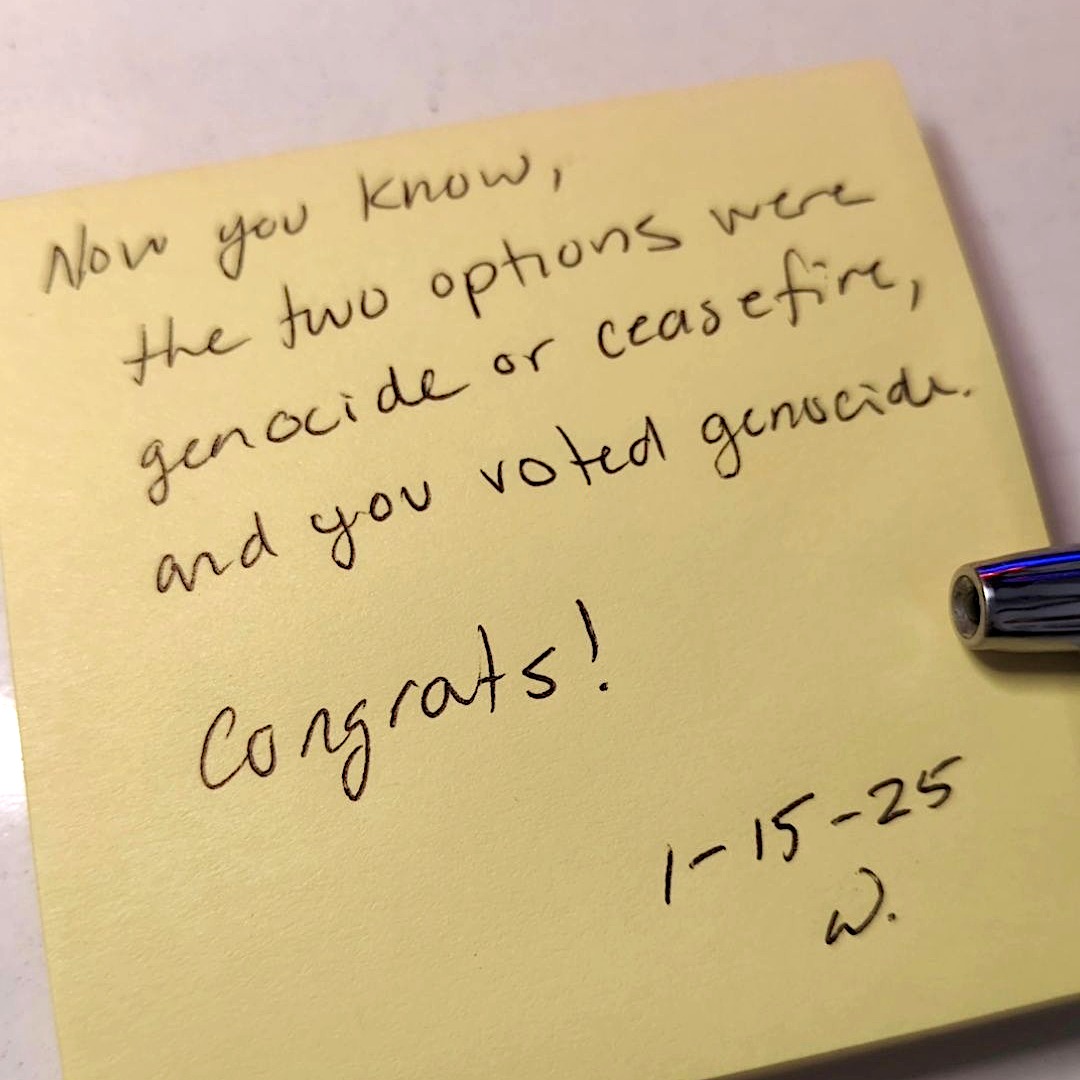 Now you know,
the two options were
genocide or ceasefire,
and you voted genocide.
Congrats!
1-15-25
W.